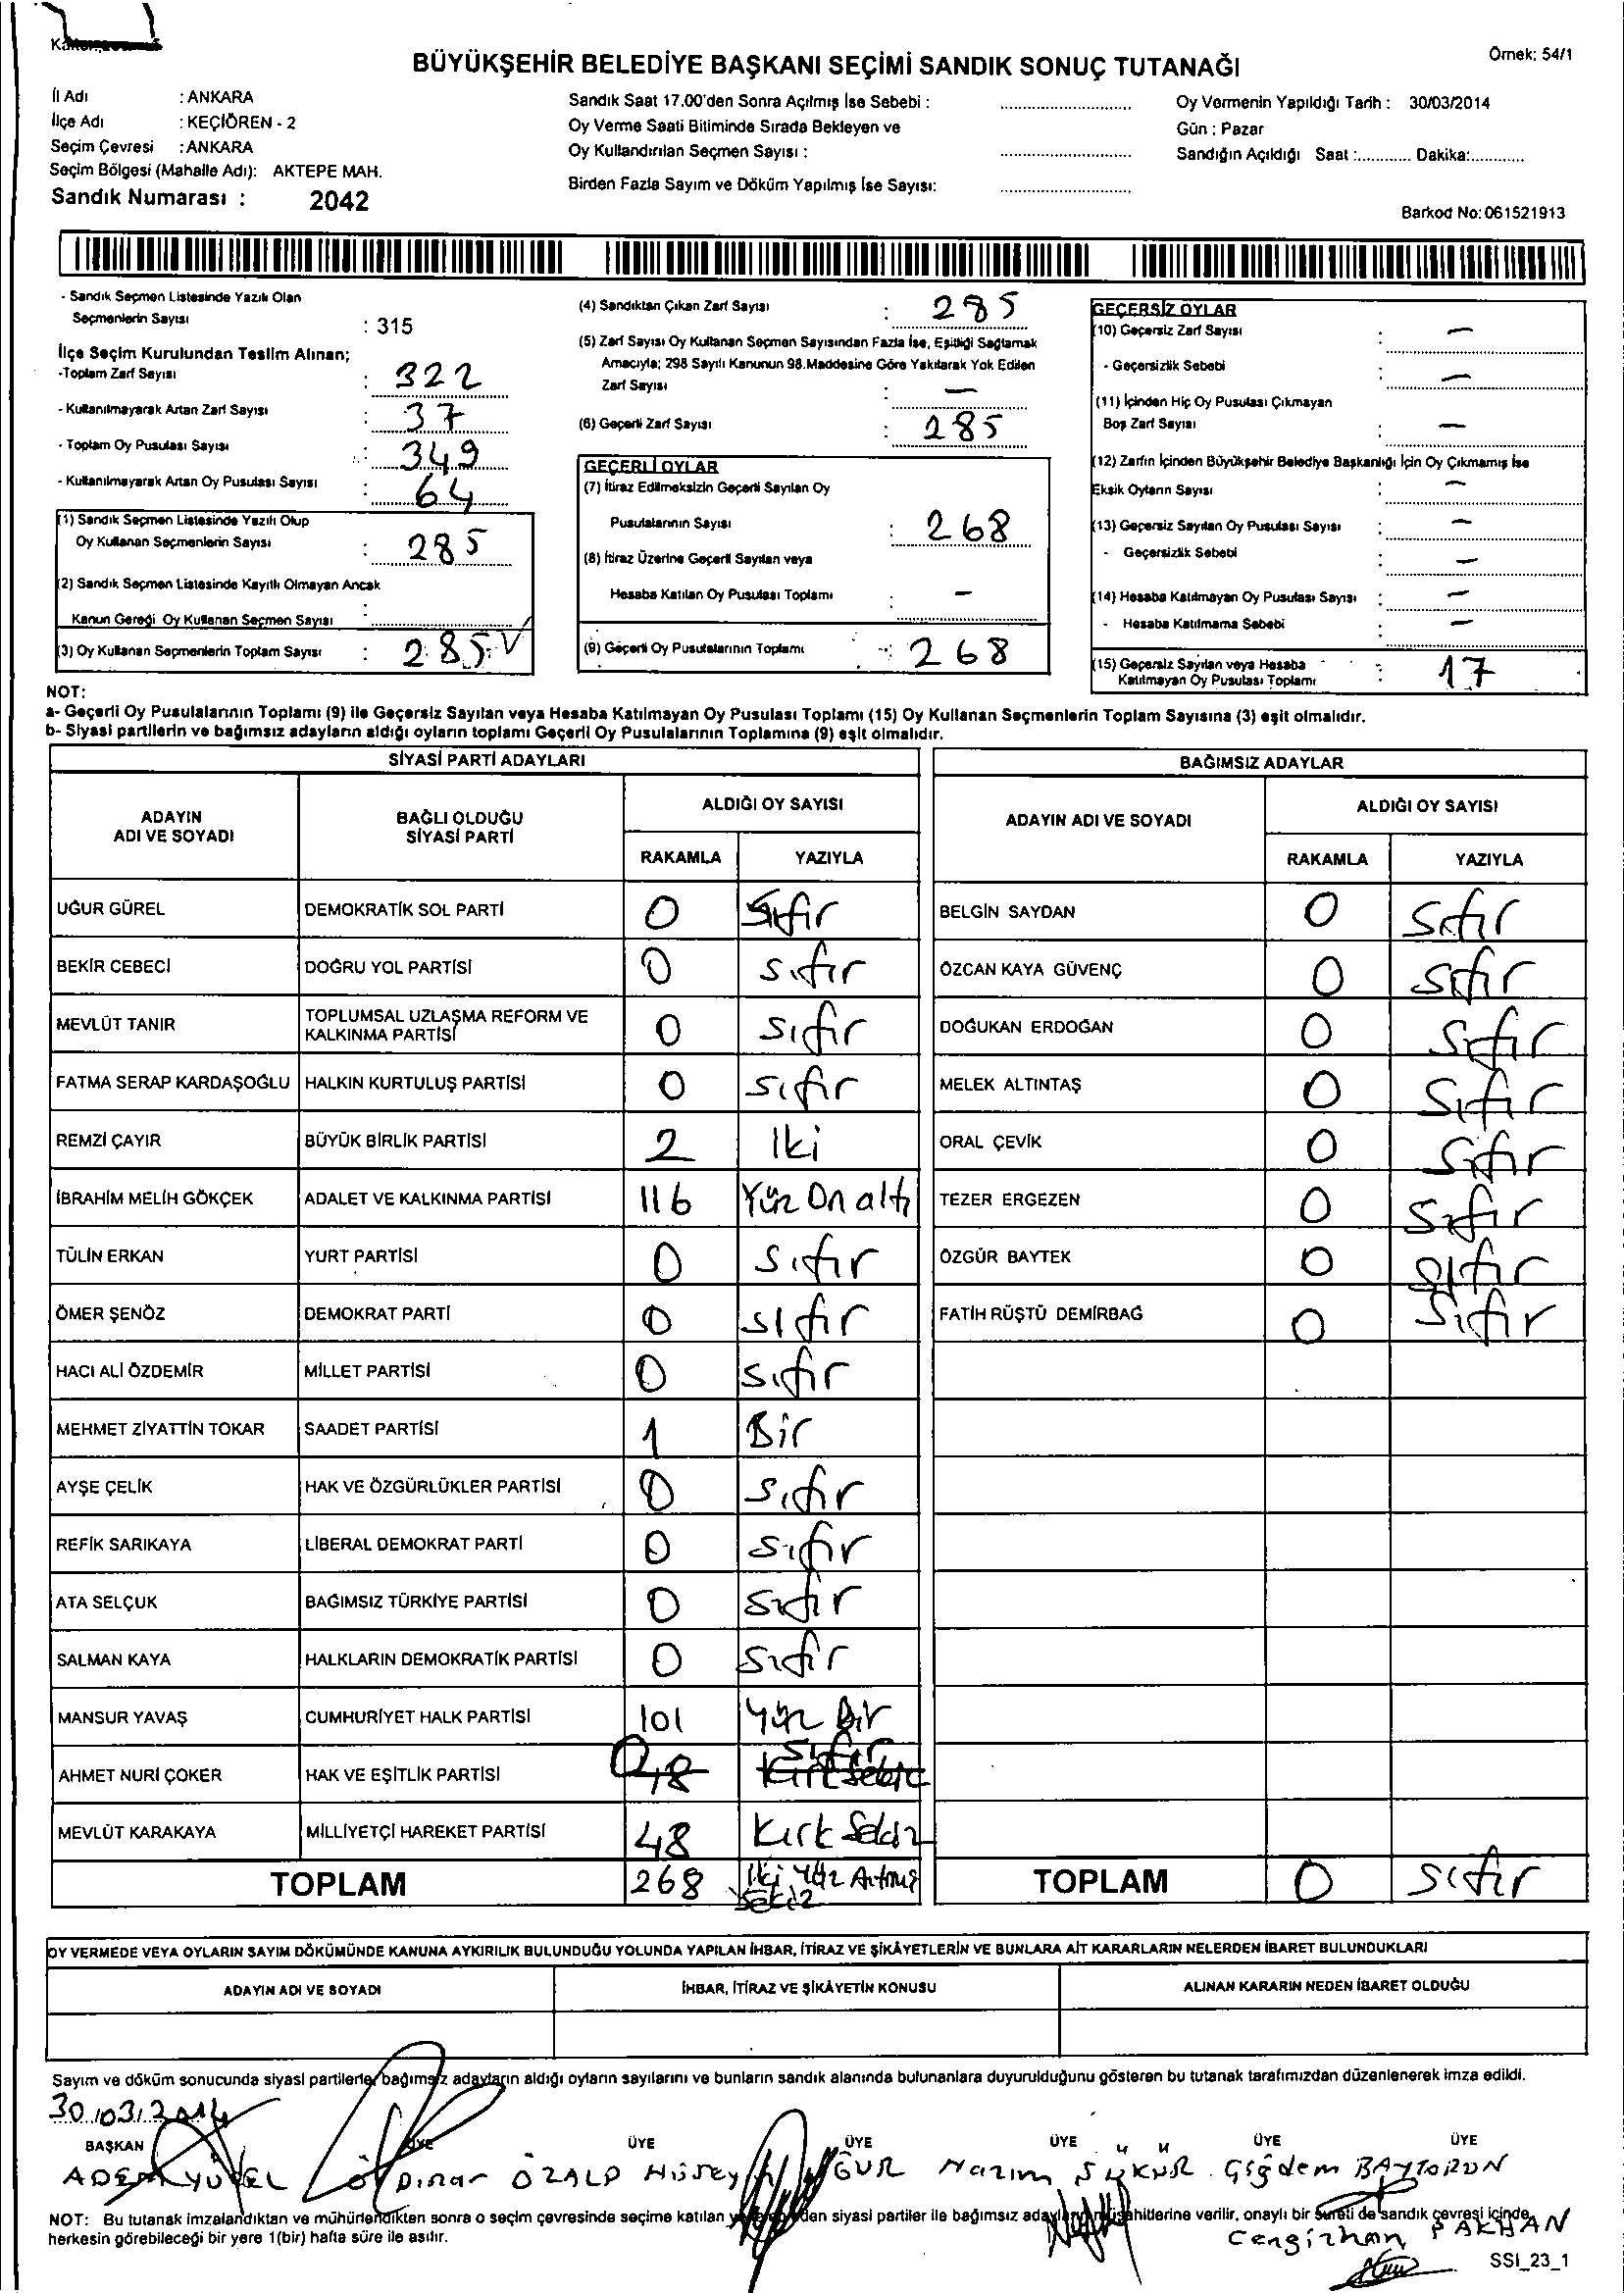 BÜYÜKŞEHİR BELEDİYE BAŞKANI SEÇİMİ SANDIK SONUÇ TUTANAĞI
Örnek: 54/1
İl Adı : ANKARA
İlçe Adı : KEÇİÖREN - 2
Seçim Çevresi : ANKARA
Seçim Bölgesi (Mahalle Adı): AKTEPE MAH.
Sandık Numarası : 2042
Sandık Saat 17.00'den Sonra Açılmış İse Sebebi :
Oy Verme Saati Bitiminde Sırada Bekleyen ve
Oy Kullandırılan Seçmen Sayısı :
Birden Fazla Sayım ve Döküm Yapılmış İse Sayısı:
Oy Vermenin Yapıldığı Tarih : 30/03/2014
Gün : Pazar
Sandığın Açıldığı Saat :............ Dakika:............
Barkod No: 061521913
- Sandık Seçmen Listesinde Yazılı Olan
Seçmenlerin Sayısı : 315
İlçe Seçim Kurulundan Teslim Alınan;
-Toplam Zarf Sayısı : 322
- Kullanılmayarak Artan Zarf Sayısı : 37
- Toplam Oy Pusulası Sayısı : 349
- Kullanılmayarak Artan Oy Pusulası Sayısı : 64
(1) Sandık Seçmen Listesinde Yazılı Olup
Oy Kullanan Seçmenlerin Sayısı : 285
(2) Sandık Seçmen Listesinde Kayıtlı Olmayan Ancak
Kanun Gereği Oy Kullanan Seçmen Sayısı :
(3) Oy Kullanan Seçmenlerin Toplam Sayısı : 285
(4) Sandıktan Çıkan Zarf Sayısı : 285
(5) Zarf Sayısı Oy Kullanan Seçmen Sayısından Fazla İse, Eşitliği Sağlamak
Amacıyla; 298 Sayılı Kanunun 98.Maddesine Göre Yakılarak Yok Edilen
Zarf Sayısı : —
(6) Geçerli Zarf Sayısı : 285
GEÇERLİ OYLAR
(7) İtiraz Edilmeksizin Geçerli Sayılan Oy
Pusulalarının Sayısı : 268
(8) İtiraz Üzerine Geçerli Sayılan veya
Hesaba Katılan Oy Pusulası Toplamı : —
(9) Geçerli Oy Pusulalarının Toplamı : 268
GEÇERSİZ OYLAR
(10) Geçersiz Zarf Sayısı : —
- Geçersizlik Sebebi : —
(11) İçinden Hiç Oy Pusulası Çıkmayan
Boş Zarf Sayısı : —
(12) Zarfın İçinden Büyükşehir Belediye Başkanlığı İçin Oy Çıkmamış İse
Eksik Oyların Sayısı : —
(13) Geçersiz Sayılan Oy Pusulası Sayısı : —
- Geçersizlik Sebebi : —
(14) Hesaba Katılmayan Oy Pusulası Sayısı : —
- Hesaba Katılmama Sebebi : —
(15) Geçersiz Sayılan veya Hesaba
Katılmayan Oy Pusulası Toplamı : 17
NOT:
a- Geçerli Oy Pusulalarının Toplamı (9) ile Geçersiz Sayılan veya Hesaba Katılmayan Oy Pusulası Toplamı (15) Oy Kullanan Seçmenlerin Toplam Sayısına (3) eşit olmalıdır.
b- Siyasi partilerin ve bağımsız adayların aldığı oyların toplamı Geçerli Oy Pusulalarının Toplamına (9) eşit olmalıdır.
SİYASİ PARTİ ADAYLARI
ADAYIN ADI VE SOYADI
BAĞLI OLDUĞU SİYASİ PARTİ
ALDIĞI OY SAYISI
RAKAMLA YAZIYLA
UĞUR GÜREL DEMOKRATİK SOL PARTİ 0 Sıfır
BEKİR CEBECİ DOĞRU YOL PARTİSİ 0 sıfır
MEVLÜT TANIR TOPLUMSAL UZLAŞMA REFORM VE KALKINMA PARTİSİ 0 sıfır
FATMA SERAP KARDAŞOĞLU HALKIN KURTULUŞ PARTİSİ 0 sıfır
REMZİ ÇAYIR BÜYÜK BİRLİK PARTİSİ 2 Iki
İBRAHİM MELİH GÖKÇEK ADALET VE KALKINMA PARTİSİ 116 Yüz On altı
TÜLİN ERKAN YURT PARTİSİ 0 sıfır
ÖMER ŞENÖZ DEMOKRAT PARTİ 0 sıfır
HACI ALİ ÖZDEMİR MİLLET PARTİSİ 0 sıfır
MEHMET ZİYATTİN TOKAR SAADET PARTİSİ 1 Bir
AYŞE ÇELİK HAK VE ÖZGÜRLÜKLER PARTİSİ 0 sıfır
REFİK SARIKAYA LİBERAL DEMOKRAT PARTİ 0 sıfır
ATA SELÇUK BAĞIMSIZ TÜRKİYE PARTİSİ 0 sıfır
SALMAN KAYA HALKLARIN DEMOKRATİK PARTİSİ 0 sıfır
MANSUR YAVAŞ CUMHURİYET HALK PARTİSİ 101 Yüz Bir
AHMET NURİ ÇOKER HAK VE EŞİTLİK PARTİSİ 0 48 sıfır Kırk Sekiz
MEVLÜT KARAKAYA MİLLİYETÇİ HAREKET PARTİSİ 48 Kırk Sekiz
TOPLAM 268 İki Yüz Atmış Sekiz
BAĞIMSIZ ADAYLAR
ADAYIN ADI VE SOYADI
ALDIĞI OY SAYISI
RAKAMLA YAZIYLA
BELGİN SAYDAN 0 Sıfır
ÖZCAN KAYA GÜVENÇ 0 sıfır
DOĞUKAN ERDOĞAN 0 Sıfır
MELEK ALTINTAŞ 0 Sıfır
ORAL ÇEVİK 0 Sıfır
TEZER ERGEZEN 0 Sıfır
ÖZGÜR BAYTEK 0 Sıfır
FATİH RÜŞTÜ DEMİRBAĞ 0 Sıfır
TOPLAM 0 sıfır
OY VERMEDE VEYA OYLARIN SAYIM DÖKÜMÜNDE KANUNA AYKIRILIK BULUNDUĞU YOLUNDA YAPILAN İHBAR, İTİRAZ VE ŞİKÂYETLERİN VE BUNLARA AİT KARARLARIN NELERDEN İBARET BULUNDUKLARI
ADAYIN ADI VE SOYADI İHBAR, İTİRAZ VE ŞİKÂYETİN KONUSU ALINAN KARARIN NEDEN İBARET OLDUĞU
Sayım ve döküm sonucunda siyasi partilerle, bağımsız adayların aldığı oyların sayılarını ve bunların sandık alanında bulunanlara duyurulduğunu gösteren bu tutanak tarafımızdan düzenlenerek imza edildi.
30/03/2014
BAŞKAN ÜYE ÜYE ÜYE ÜYE ÜYE ÜYE
ADEM YÜCEL Pınar ÖZALP Nazım ŞÜKÜR Çiğdem BAYTORUN
Cengizhan
NOT: Bu tutanak imzalandıktan ve mühürlendikten sonra o seçim çevresinde seçime katılan siyasi partiler ile bağımsız aday müşahitlerine verilir, onaylı bir sureti de sandık çevresi içinde
herkesin görebileceği bir yere 1(bir) hafta süre ile asılır.
SSI_23_1